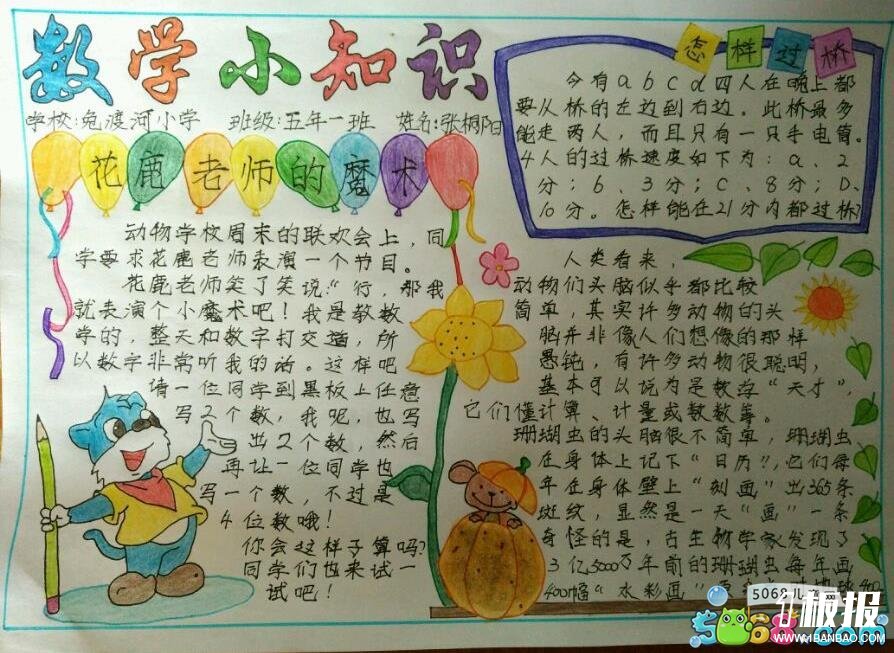 数学小知识
学校:兔渡河小学 班级:五年一班 姓名:张桐阳
花鹿老师的魔术
动物学校周末的联欢会上，同
学要求花鹿老师表演一个节目。
花鹿老师笑了笑说:“行，那我
就表演个小魔术吧！我是教数
学的，整天和数字打交道，所
以数字非常听我的话。这样吧
请一位同学到黑板上任意
写2个数，我呢，也写
出2个数，然后
再让一位同学也
写一个数，不过是
4位数哦！
你会这样子算吗？
同学们也来试一
试吧！
怎样过桥
今有abcd四人在晚上都
要从桥的左边到右边。此桥最多
能走两人，而且只有一只手电筒。
4人的过桥速度如下为：a、2
分；b、3分；C、8分；D、
10分。怎样能在21分内都过桥？
人类看来，
动物们头脑似乎都比较
简单，其实许多动物的头
脑并非像人们想像的那样
愚钝，有许多动物很聪明，
基本可以说为是数学“天才”，
它们懂计算、计量或数数等。
珊瑚虫的头脑很不简单，珊瑚虫
在身体上记下“日历”，它们每
年在身体壁上“刻画”出365条
斑纹，显然是一天“画”一条
奇怪的是，古生物学家发现了
3亿5000万年前的珊瑚虫每年画
400幅“水彩画”
5068儿
板报
5068.com
WWW.41BANBAO.COM